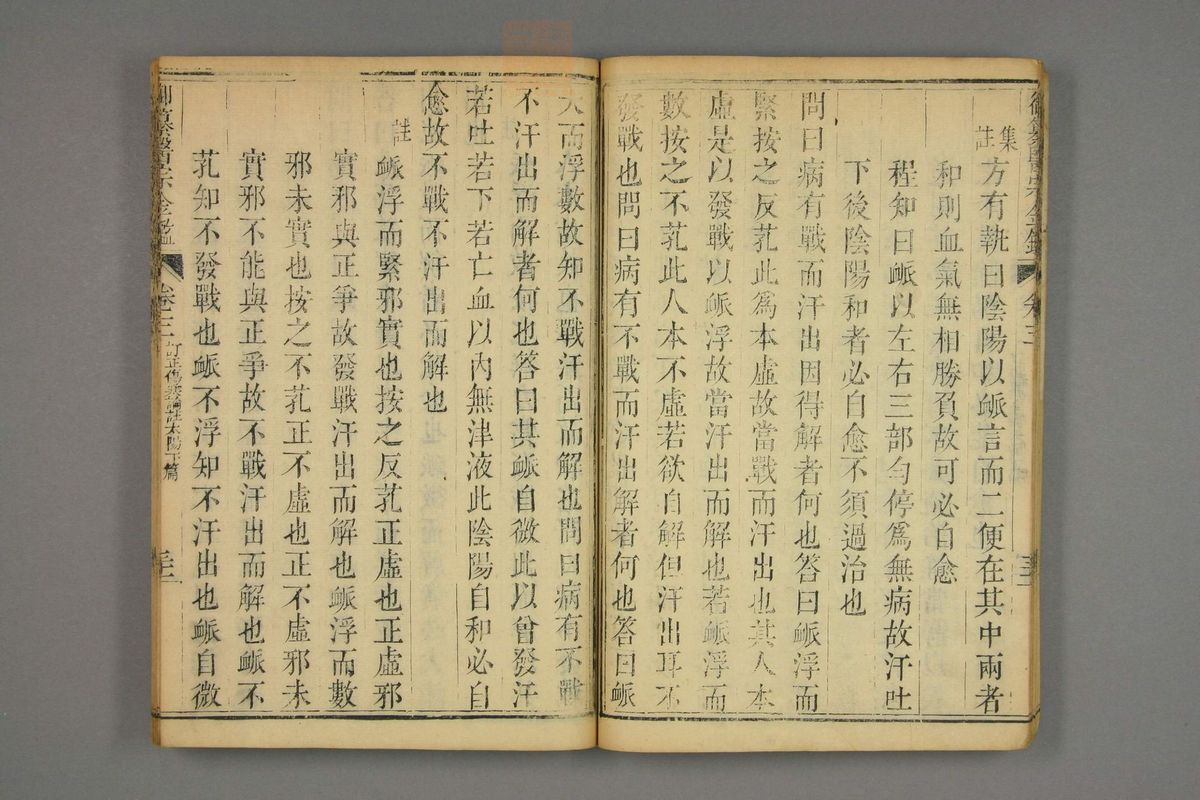 御纂醫宗金鑑 卷三
集註 方有執曰陰陽以脈言而二便在其中兩者
和則血氣無相勝負故可必自愈
程知曰脈以左右三部勻停爲無病故汗吐
下後陰陽和者必自愈不須過治也
問曰病有戰而汗出因得解者何也答曰脈浮而
緊按之反芤此爲本虛故當戰而汗出也其人本
虛是以發戰以脈浮故當汗出而解也若脈浮而
數按之不芤此人本不虛若欲自解但汗出耳不
發戰也問曰病有不戰而汗出解者何也答曰脈
大而浮數故知不戰汗出而解也問曰病有不戰
不汗出而解者何也答曰其脈自微此以曾發汗
若吐若下若亡血以內無津液此陰陽自和必自
愈故不戰不汗出而解也
註 脈浮而緊邪實也按之反芤正虛也正虛邪
實邪與正爭故發戰汗出而解也脈浮而數
邪未實也按之不芤正不虛也正不虛邪未
實邪不能與正爭故不戰汗出而解也脈不
芤知不發戰也脈不浮知不汗出也脈自微
御纂醫宗金鑑 卷三 訂正傷寒論註太陽下篇